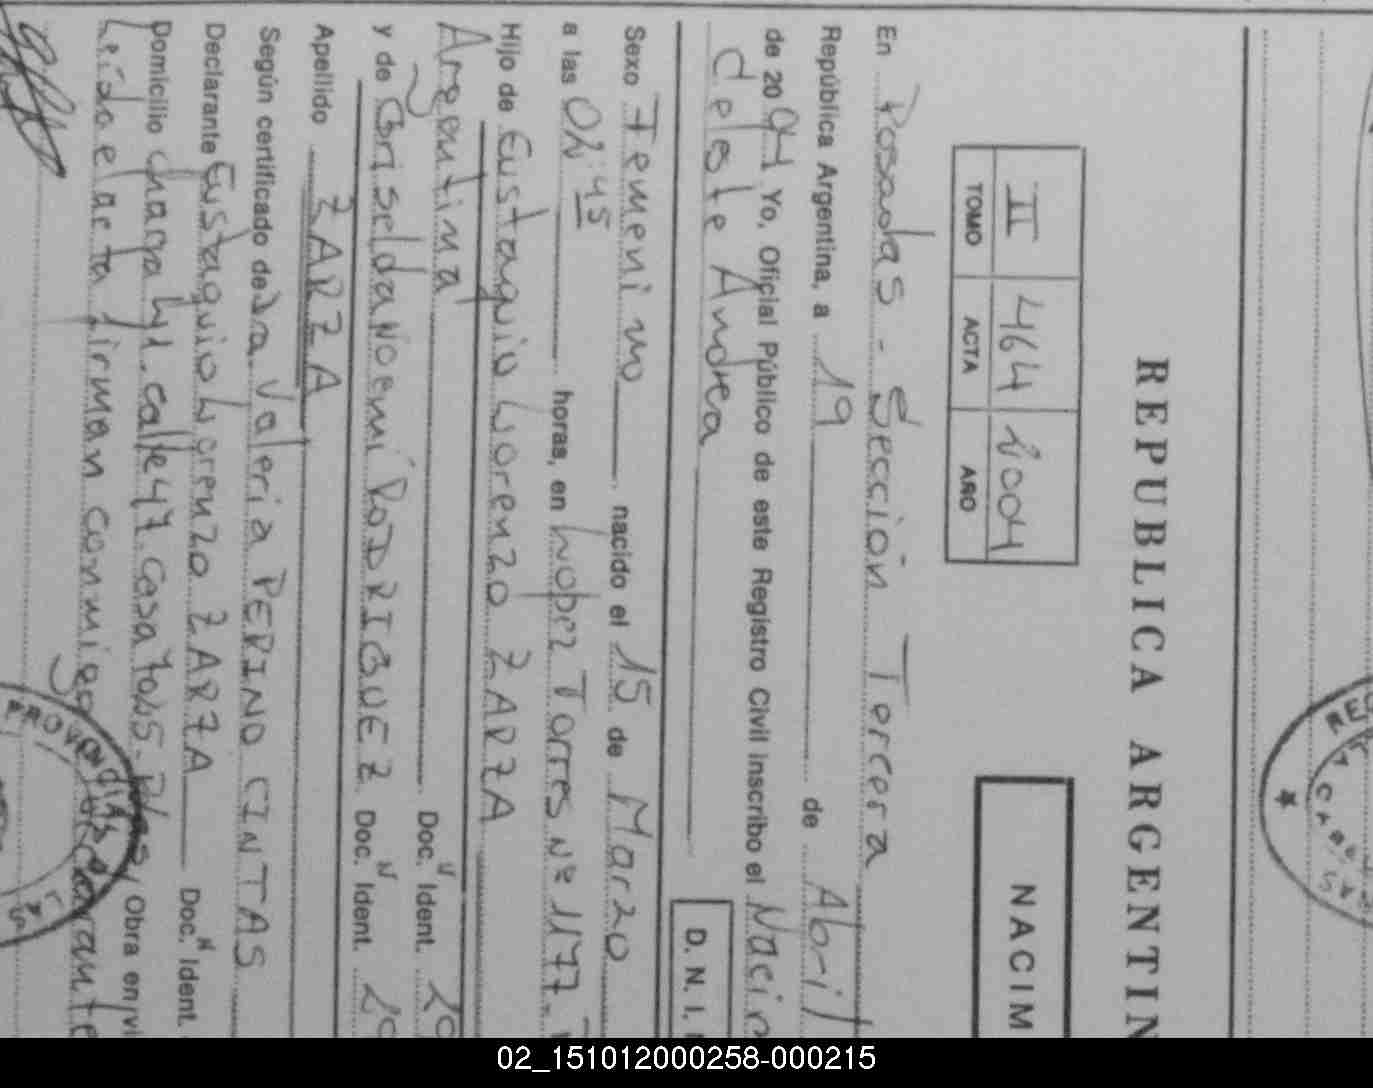 REPUBLICA ARGENTIN
NACIM
II 464 2004
TOMO ACTA AÑO
En Posadas - Sección Tercera
República Argentina, a 19 de Abril
de 2004 Yo, Oficial Público de este Registro Civil inscribo el Nacim
Celeste Andrea
D. N. I.
Sexo Femenino, nacido el 15 de Marzo
a las 02:45 horas, en López Torres Nº 1177-
Hijo de Eustaquio Lorenzo ZARZA
Argentina Doc. N Ident. 20
y de Griselda Noemí RODRIGUEZ Doc. N Ident. 20
Apellido ZARZA
Según certificado de Dra. Valeria PERINO CINTAS
Declarante Eustaquio Lorenzo ZARZA Doc. N Ident.
Domicilio Chacra calle 47 casa Obra en vi
Leída el acta firman conmigo declarante
PROVINCIAL
02_151012000258-000215